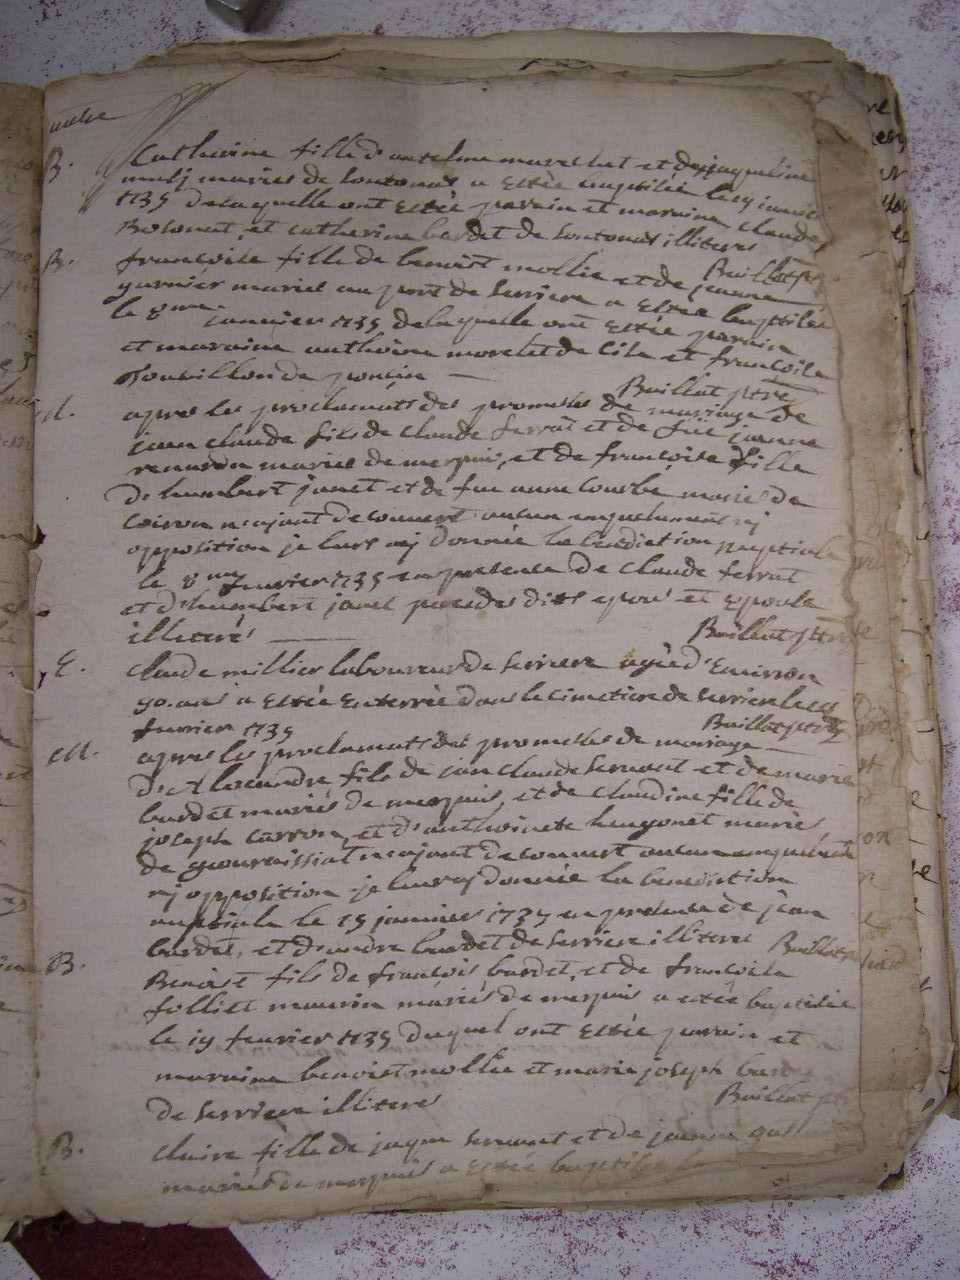 B. Catherine fille d'antelme mareschat et de jaqueline
maries de Soutonas a estée baptisée le janvier
1735 de laquelle ont estée parain et maraine claude
et catherine bardet de Soutonas illiteres
Baillat ptre
B. francoise fille de benoist mollie et de jeanne
garnier maries au port de Serriere a estée baptisée
le 8me janvier 1735 de laquelle ont estée parain
et maraine anthoine morelet de lile et francoise
de poncin
Baillat ptre
M. apres les proclamats des promesses de mariage de
jean claude fils de claude ferrat et de jeanne
maries de merpuis, et de francoise fille
d'humbert janet et de fue anne Courbe maries de
Coiron n'ajant decouvert aucun empechement nj
opposition je leurs aj donnée la benediction nuptiale
le 8me fevrier 1735 en presence de claude ferrat
et d'humbert janet peres des dits epous et epouse
illiterés
Baillat ptre
E. claude millier laboureur de Serriere agée d'Environ
90. ans a estée Enterrée dans le cimetiere de Serriere le
fevrier 1735
Baillat ptre
M. apres les proclamats des promesses de mariage
d'Alexandre fils de jean claude Servant et de marie
bardet mariés de merpuis, et de claudine fille de
joseph Carron, et d'anthoinete hugonet mariés
de n'ajant decouvert aucun empechement
nj opposition je leurs aj donnée la benediction
nuptiale le 15 janvier 1735 en presence de jean
bardet, et d'andre bardet de Serriere illiteres Baillat
B. Benoist fils de francois bardet, et de francoise
follict maurin mariés de merpuis a estée baptisée
le 19 fevrier 1735 duquel ont estée parain et
maraine benoist mollie et marie joseph
de Serriere illiteres
Baillat
B. claire fille de jaque Servant et de jeanne
mariés de merpuis a estée baptisée